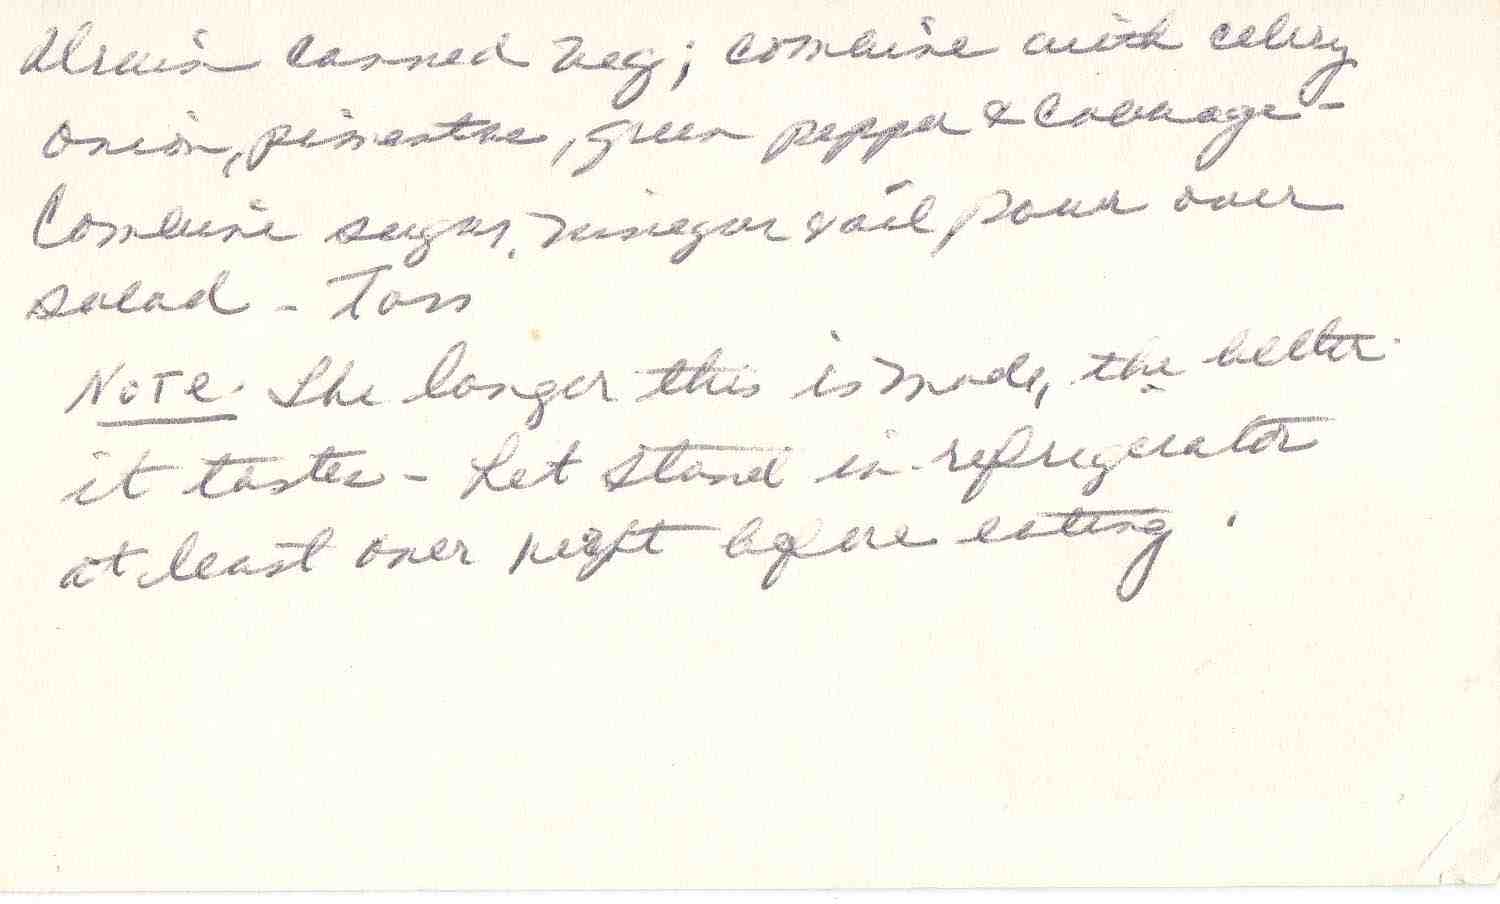 Drain canned veg; combine with celery
onion, pimento, green pepper & cabbage -
Combine sugar, vinegar & oil, pour over
salad - Toss
NOTE. The longer this is made, the better
it tastes - Let stand in refrigerator
at least over night before eating.